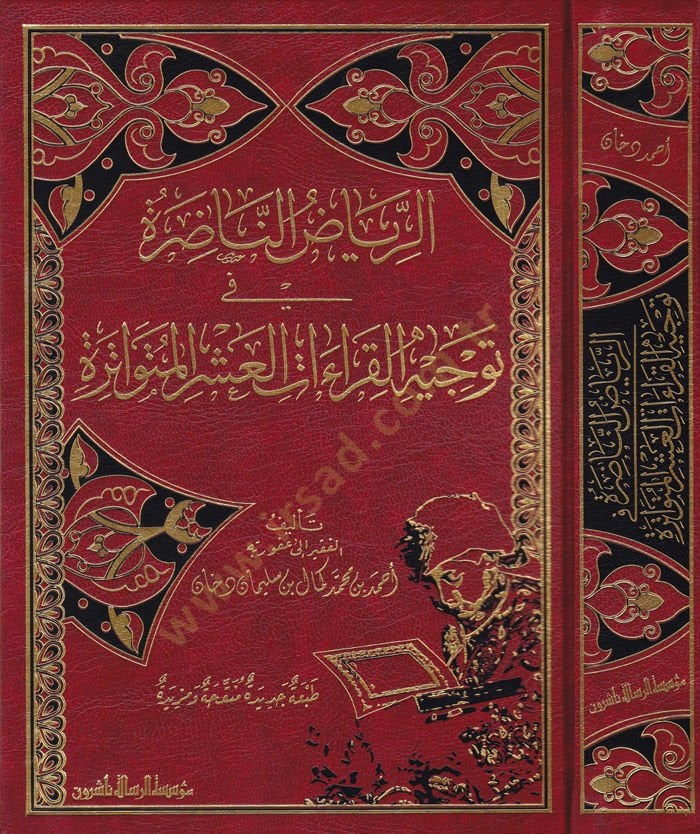 الرِّيَاضُ النَّاضِرَةُ
فِي
تَوْجِيهِ القِرَاءَاتِ العَشْرِ المُتَوَاتِرَةِ
تَأليف
الفقير إلى عفو ربه
أحمد بن محمد كمال بن سليمان دخان
طَبْعَةٌ جَدِيدَةٌ مُنَقَّحَةٌ وَمَزِيدَةٌ
مؤسسة الرسالة ناشرون
أحمد دخان
الرِّيَاضُ النَّاضِرَةُ فِي
تَوْجِيهِ القِرَاءَاتِ العَشْرِ المُتَوَاتِرَةِ
مؤسسة الرسالة ناشرون
www.irsad.com.tr